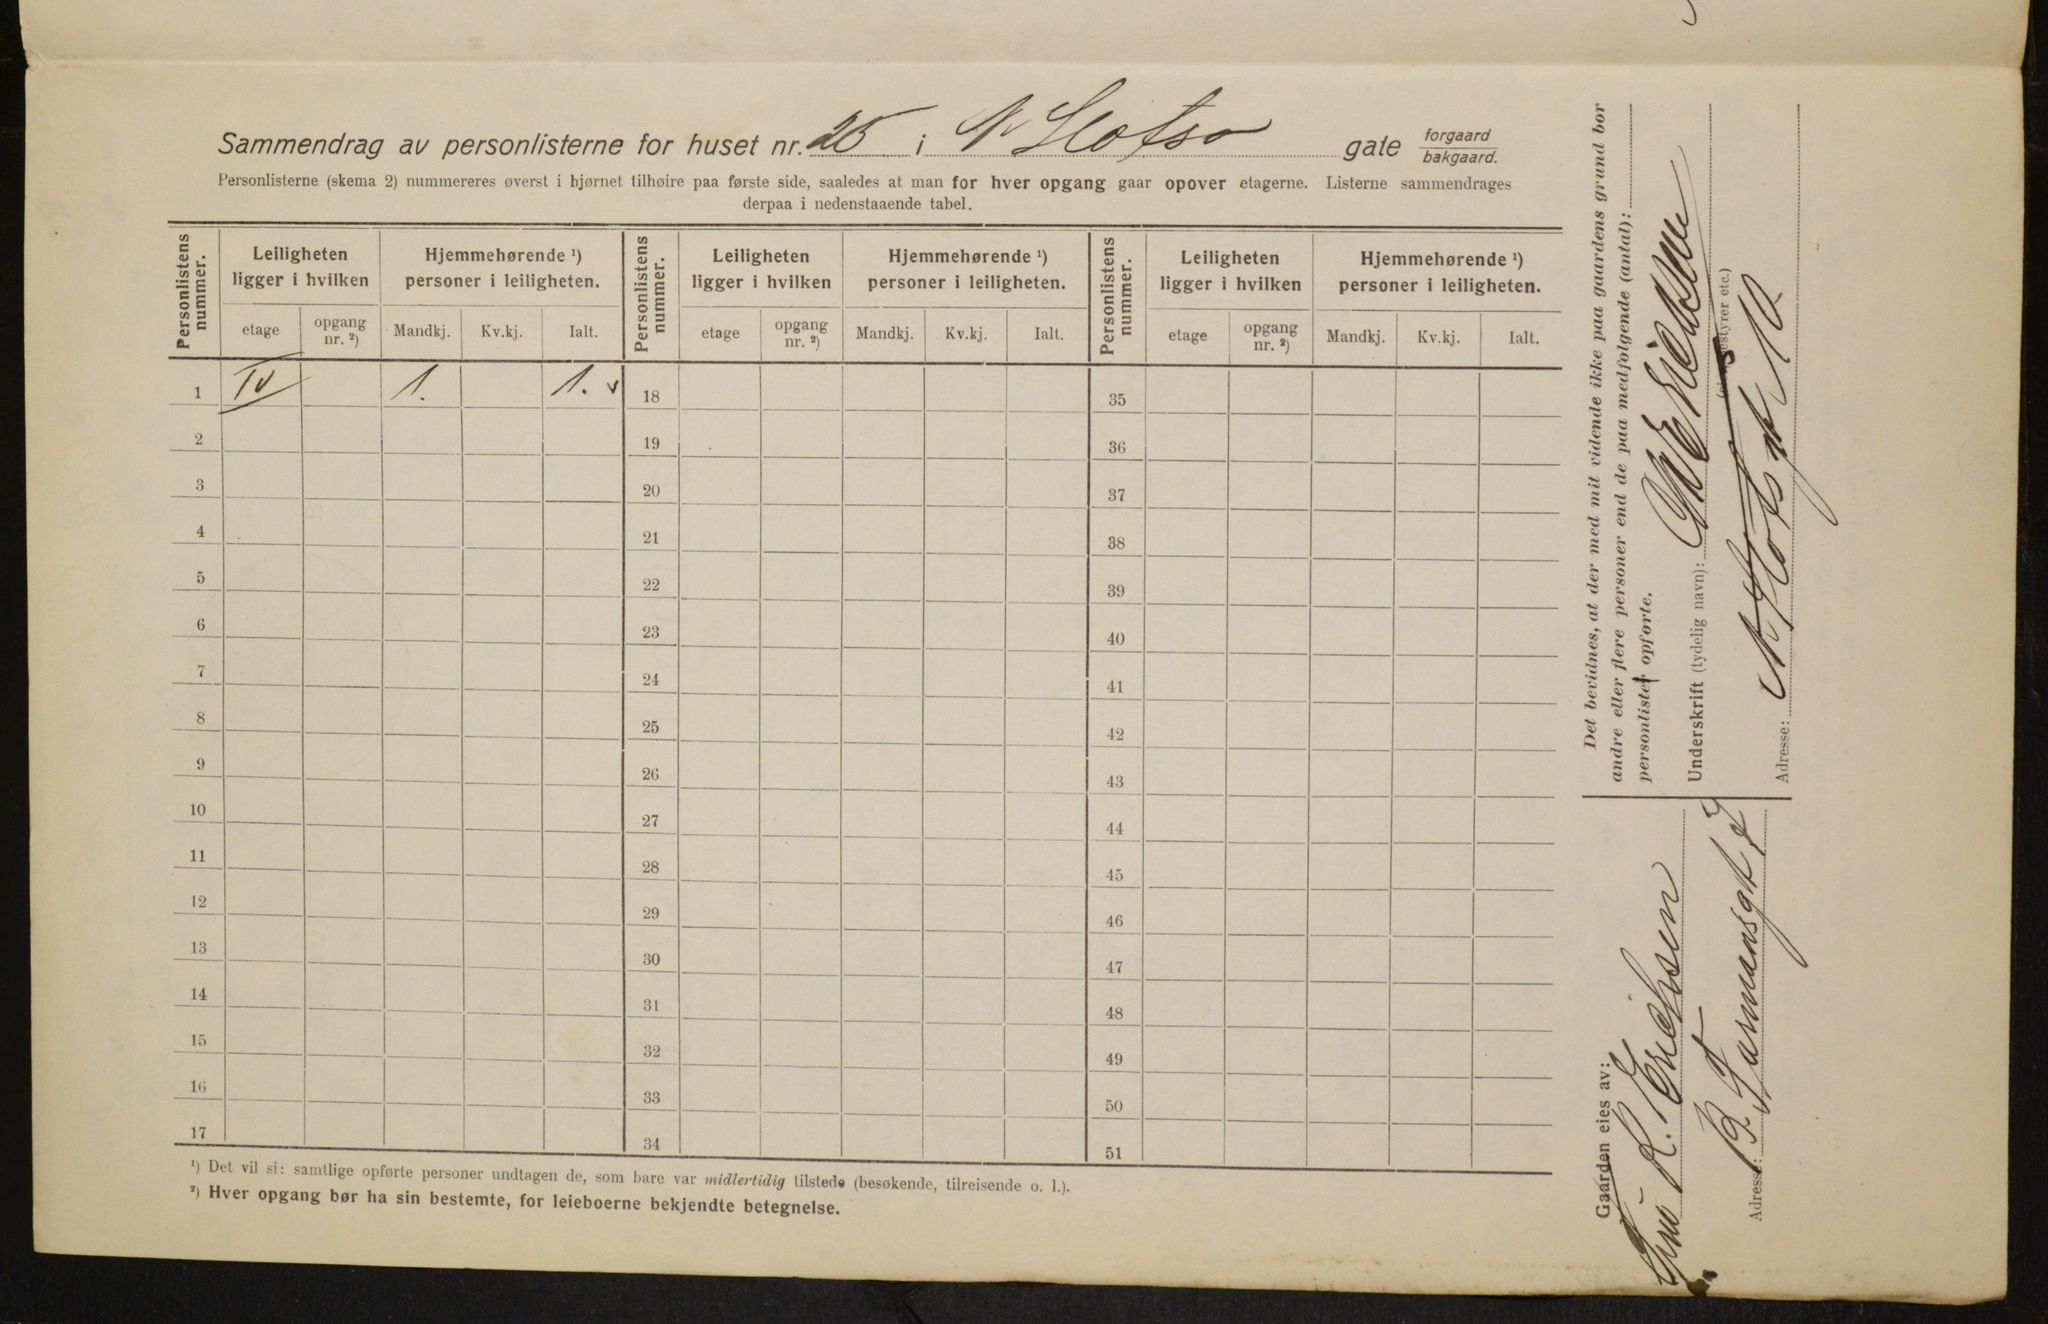 Sammendrag av personlisterne for huset nr. 25 i N Slotss gate forgaard bakgaard.
Personlisterne (skema 2) nummereres øverst i hjørnet tilhøire paa første side, saaledes at man for hver opgang gaar opover etagerne. Listerne sammendrages
derpaa i nedenstaaende tabel.
Personlistens nummer. Leiligheten ligger i hvilken Hjemmehørende ¹) personer i leiligheten. Personlistens nummer. Leiligheten ligger i hvilken Hjemmehørende ¹) personer i leiligheten. Personlistens nummer. Leiligheten ligger i hvilken Hjemmehørende ¹) personer i leiligheten.
etage opgang nr. ²) Mandkj. Kv.kj. Ialt. etage opgang nr. ²) Mandkj. Kv.kj. Ialt. etage opgang nr. ²) Mandkj. Kv.kj. Ialt.
1 IV 1. 1. v 18 35
2 19 36
3 20 37
4 21 38
5 22 39
6 23 40
7 24 41
8 25 42
9 26 43
10 27 44
11 28 45
12 29 46
13 30 47
14 31 48
15 32 49
16 33 50
17 34 51
¹) Det vil si: samtlige opførte personer undtagen de, som bare var midlertidig tilstede (besøkende, tilreisende o. l.).
²) Hver opgang bør ha sin bestemte, for leieboerne bekjendte betegnelse.
Det bevidnes, at der med mit vidende ikke paa gaardens grund bor
andre eller flere personer end de paa medfølgende (antal):
personlister opførte.
Underskrift (tydelig navn): Erichsen
(eier, bestyrer etc.)
Adresse: N Slotsgt 10
Gaarden eies av:
Fru K. Erichsen
Adresse: B. Tarmansgt 7